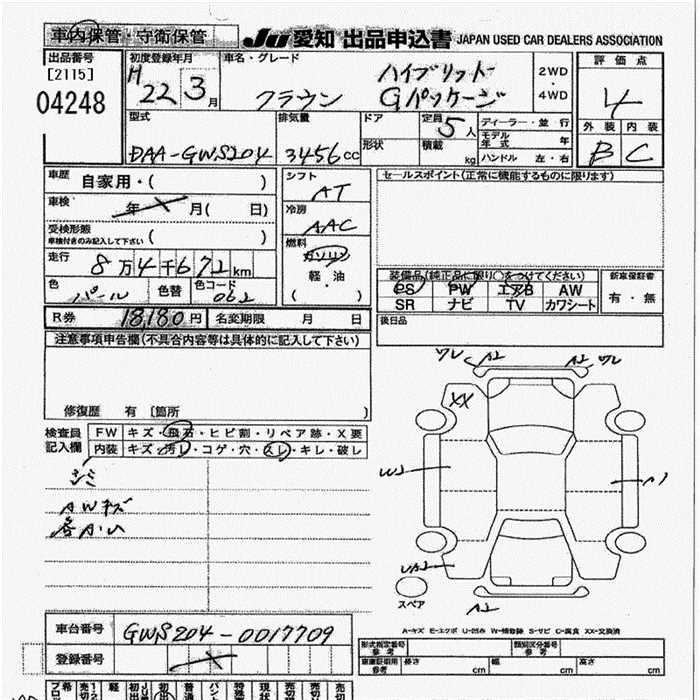 車内保管・守衛保管
JU 愛知 出品申込書 JAPAN USED CAR DEALERS ASSOCIATION
出品番号 [2115] 04248
初度登録年月 H 22 3月
車名・グレード クラウン ハイブリット Gパッケージ 2WD ・ 4WD
評価点 4
外装 内装
B C
型式 DAA-GWS204
排気量 3456cc
ドア
形状
定員 5人
積載 kg
ディーラー・並行
モデル年式 年
ハンドル 左・右
車歴 自家用・( )
車検 年 月( 日)
受検形態 車検付きのみ記入して下さい ( )
走行 8万4千672km
色 パール 色替 色コード 062
シフト AT
冷房 AAC
燃料 ガソリン 軽・油 ( )
セールスポイント(正常に機能するものに限ります)
装備品(純正品に限り○をつけてください)
PS PW エアB AW
SR ナビ TV カワシート
新車保証書 有・無
後日品
R券 18,180円 名変期限 月 日
注意事項申告欄(不具合内容等は具体的に記入して下さい)
修復歴 有 [箇所 ]
検査員記入欄
FW キズ・飛石・ヒビ割・リペア跡・X要
内装 キズ・汚レ・コゲ・穴・スレ・キレ・破レ
シミ
AWキズ
ワレ A2 A2 ワレ
XX
W2 A1
UA2
A2
スペア
A-キズ E-エクボ U-凹み W-補修跡 S-サビ C-腐食 XX-交換済
車台番号 GWS204-0017709
登録番号
形式指定番号 参考 類別区分番号 参考
車庫証明用 参考 長さ cm 幅 cm 高さ cm